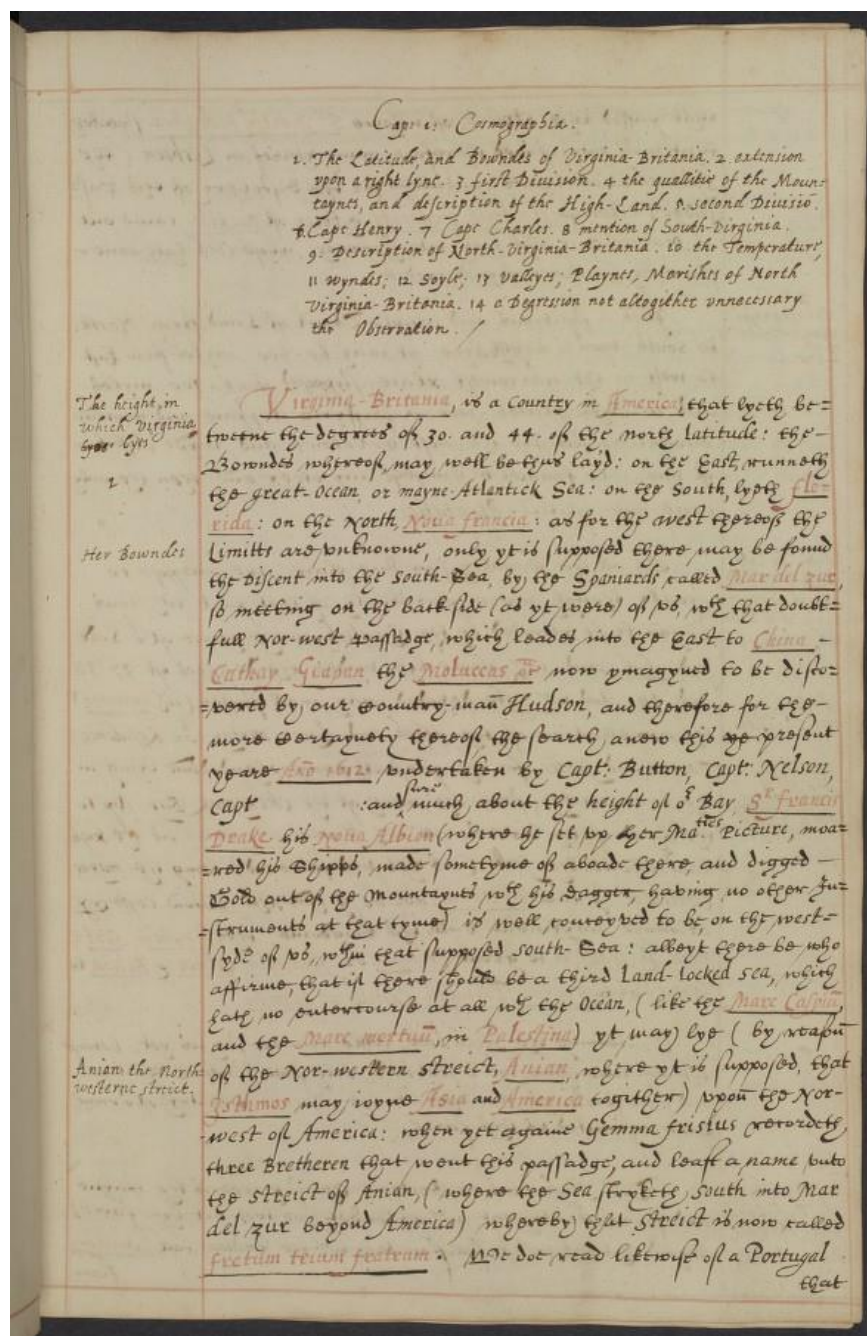 Cap: 1: Cosmographia.
1. The Latitude, and Bowndes of Virginia-Britania. 2. extension
vpon a right lyne. 3 first Division. 4 the quallitie of the Moun=
taynes, and description of the High-Land. 5. second Divisio.
6. Cape Henry. 7 Cape Charles. 8 mention of South-Virginia.
9. Description of North-Virginia-Britania. 10 the Temperature,
11 wyndes; 12 Soyle; 13 valleyes; Playnes, Marishes of North
Virginia-Britania. 14 a Degression not altogither vnnecessary
the Observation. /
The height, in
which Virginia
lyes
1
Virginia-Britania, is a Country in America, that lyeth be=
tweene the degrees of 30. and 44. of the north latitude: the
Bowndes whereof, may well be thus layd: on the East, runneth
the great-Ocean, or mayne-Atlantick Sea: on the South, lyeth Flo=
rida: on the North, Nova francia: as for the west thereof, the
Her Bowndes
Limitts are vnknowne, only yt is supposed there may be found
the Discent into the South-Sea, by the Spaniards called Mar del zur,
so meeting on the back-side (as yt were) of vs, wth that doubt=
full Nor-west passadge, which leades into the East to China
Cathay Giapan the Moluccas &c now ymagyned to be disco=
=vered by our Country-man Hudson, and therefore for the
more certaynety thereof the search anew this present
yeare Ano 1612 vndertaken by Capt: Button, Capt: Nelson,
Capt :and much about the height of or Bay Sr francis
Drake his Nova Albion (where he set vp her Ma.ties Picture, moa=
=red his Shipps, made sometyme of aboade there, and digged
Gold out of the Mountaynes wth his dagger, having no other In=
=struments at that tyme) is well conceyved to be on the west-
syde of vs, wthin that supposed South-Sea: albeyt there be who
affirme, that if there should be a third Land-locked Sea, which
hath no entercourse at all wth the Ocean, (like the Mare Caspiū,
and the Mare mortuū, in Palestina) yt may lye (by reason
Anian the North
westerne streict.
of the Nor-western Streict, Anian, where yt is supposed, that
Isthmos may ioyne Asia and America togither) vpon the Nor-
-west of America: when yet againe Gemma frisius recordeth,
three Bretheren that went this passadge, and leaft a name vnto
the streict of Anian, (where the Sea stryketh South into Mar
del zur beyond America) whereby that Streict is now called
fretum trium fratrum. We doe read likewise of a Portugal
that